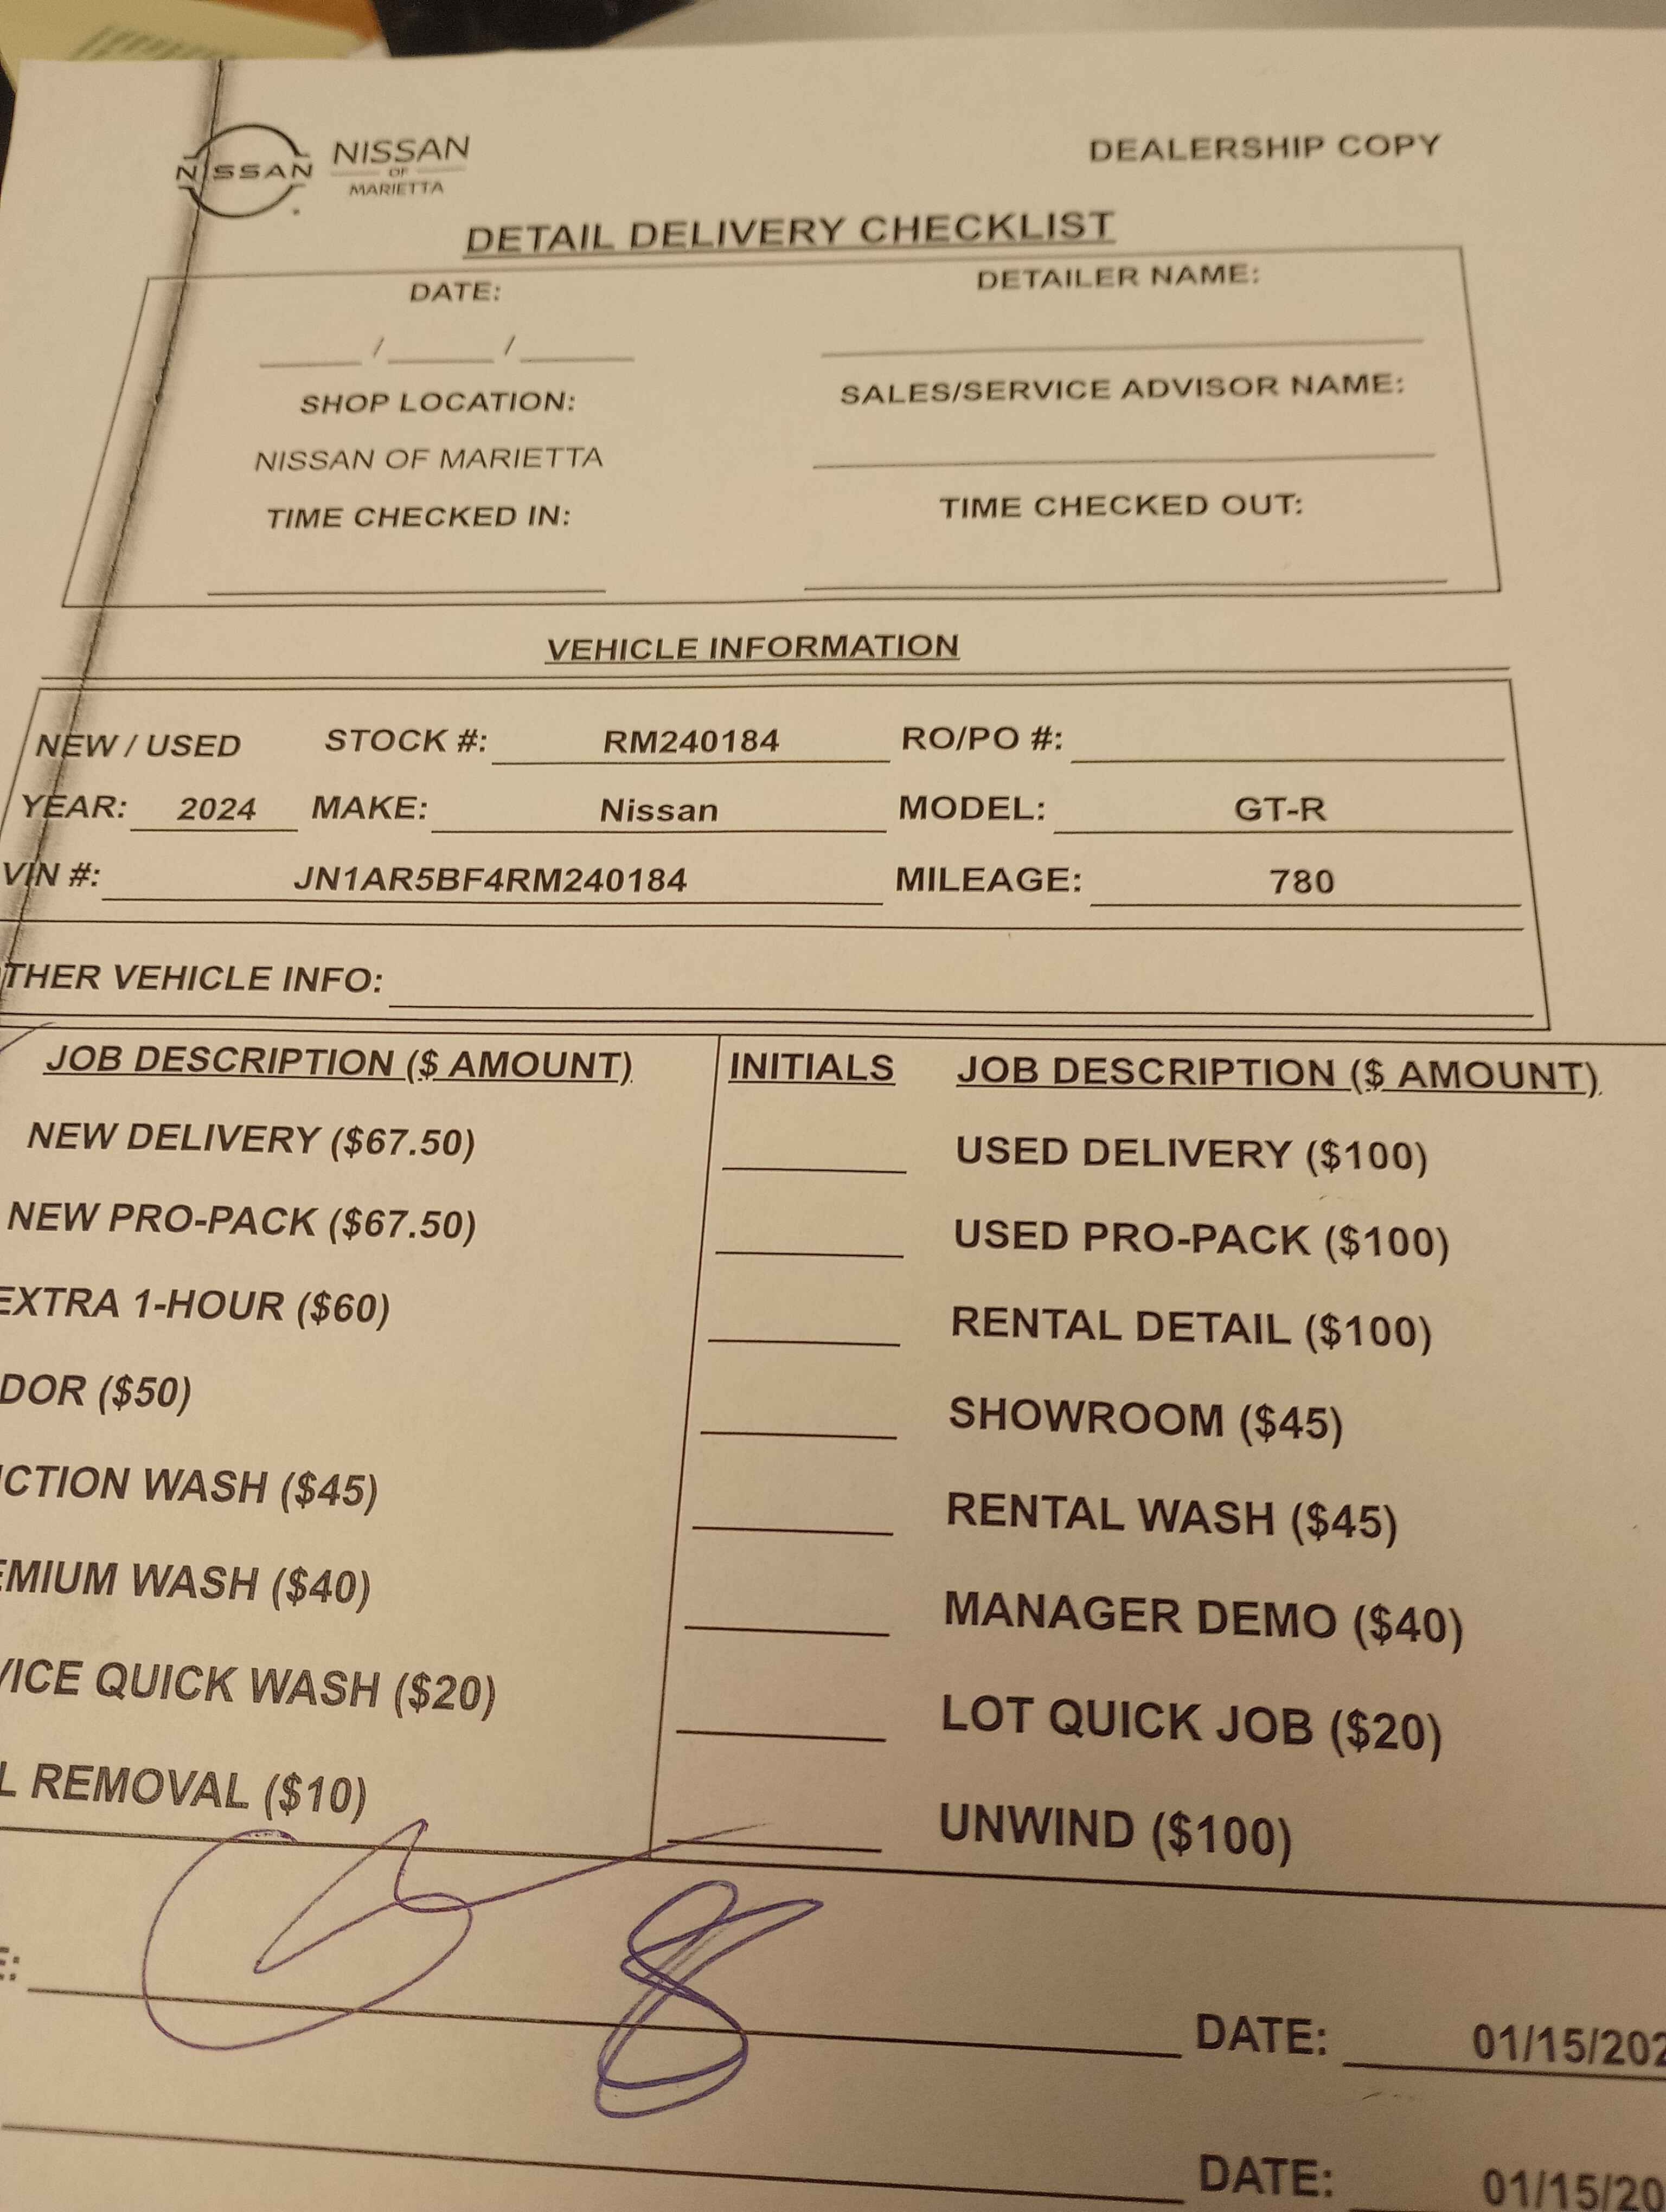 NISSAN
NISSAN
OF
MARIETTA
DEALERSHIP COPY
DETAIL DELIVERY CHECKLIST
DATE: DETAILER NAME:
/ /
SHOP LOCATION: SALES/SERVICE ADVISOR NAME:
NISSAN OF MARIETTA
TIME CHECKED IN: TIME CHECKED OUT:
VEHICLE INFORMATION
NEW / USED STOCK #: RM240184 RO/PO #:
YEAR: 2024 MAKE: Nissan MODEL: GT-R
VIN #: JN1AR5BF4RM240184 MILEAGE: 780
THER VEHICLE INFO:
JOB DESCRIPTION ($ AMOUNT) INITIALS JOB DESCRIPTION ($ AMOUNT)
NEW DELIVERY ($67.50) USED DELIVERY ($100)
NEW PRO-PACK ($67.50) USED PRO-PACK ($100)
EXTRA 1-HOUR ($60) RENTAL DETAIL ($100)
DOR ($50) SHOWROOM ($45)
CTION WASH ($45) RENTAL WASH ($45)
EMIUM WASH ($40) MANAGER DEMO ($40)
VICE QUICK WASH ($20) LOT QUICK JOB ($20)
L REMOVAL ($10) UNWIND ($100)
E: DATE: 01/15/202
DATE: 01/15/20